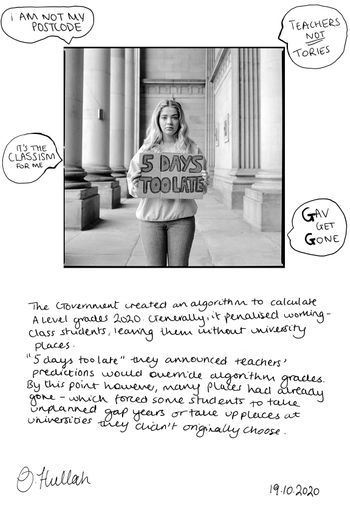 I AM NOT MY
POSTCODE
TEACHERS
NOT
TORIES
IT'S THE
CLASSISM
FOR ME
5 DAYS
TOO LATE
GAV
GET
GONE
The Government created an algorithm to calculate
A level grades 2020. Generally, it penalised working-
class students, leaving them without university
places.
"5 days too late" they announced teachers'
predictions would override algorithm grades.
By this point however, many places had already
gone - which forced some students to take
unplanned gap years or take up places at
universities they didn't originally choose.
O. Hullah
19.10.2020